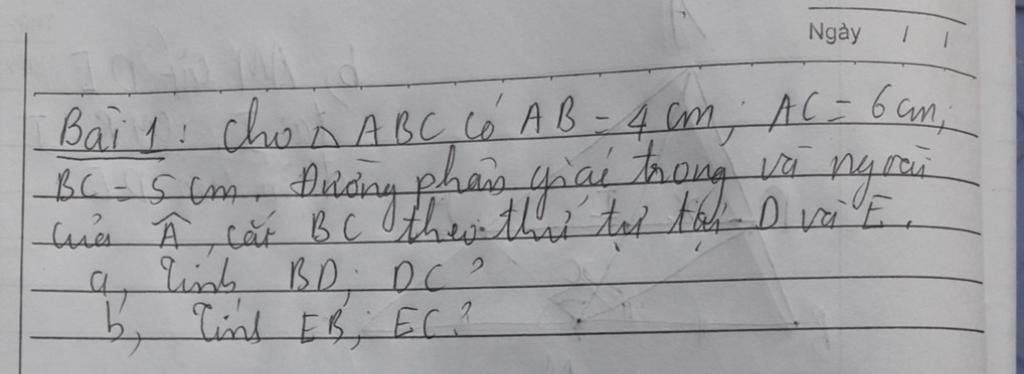 Ngày / /
Bài 1: Cho △ ABC có AB = 4 cm; AC = 6 cm;
BC = 5 cm. Đường phân giác trong và ngoài
của Â, cắt BC theo thứ tự tại D và E.
a, Tính BD; DC?
b, Tính EB; EC?